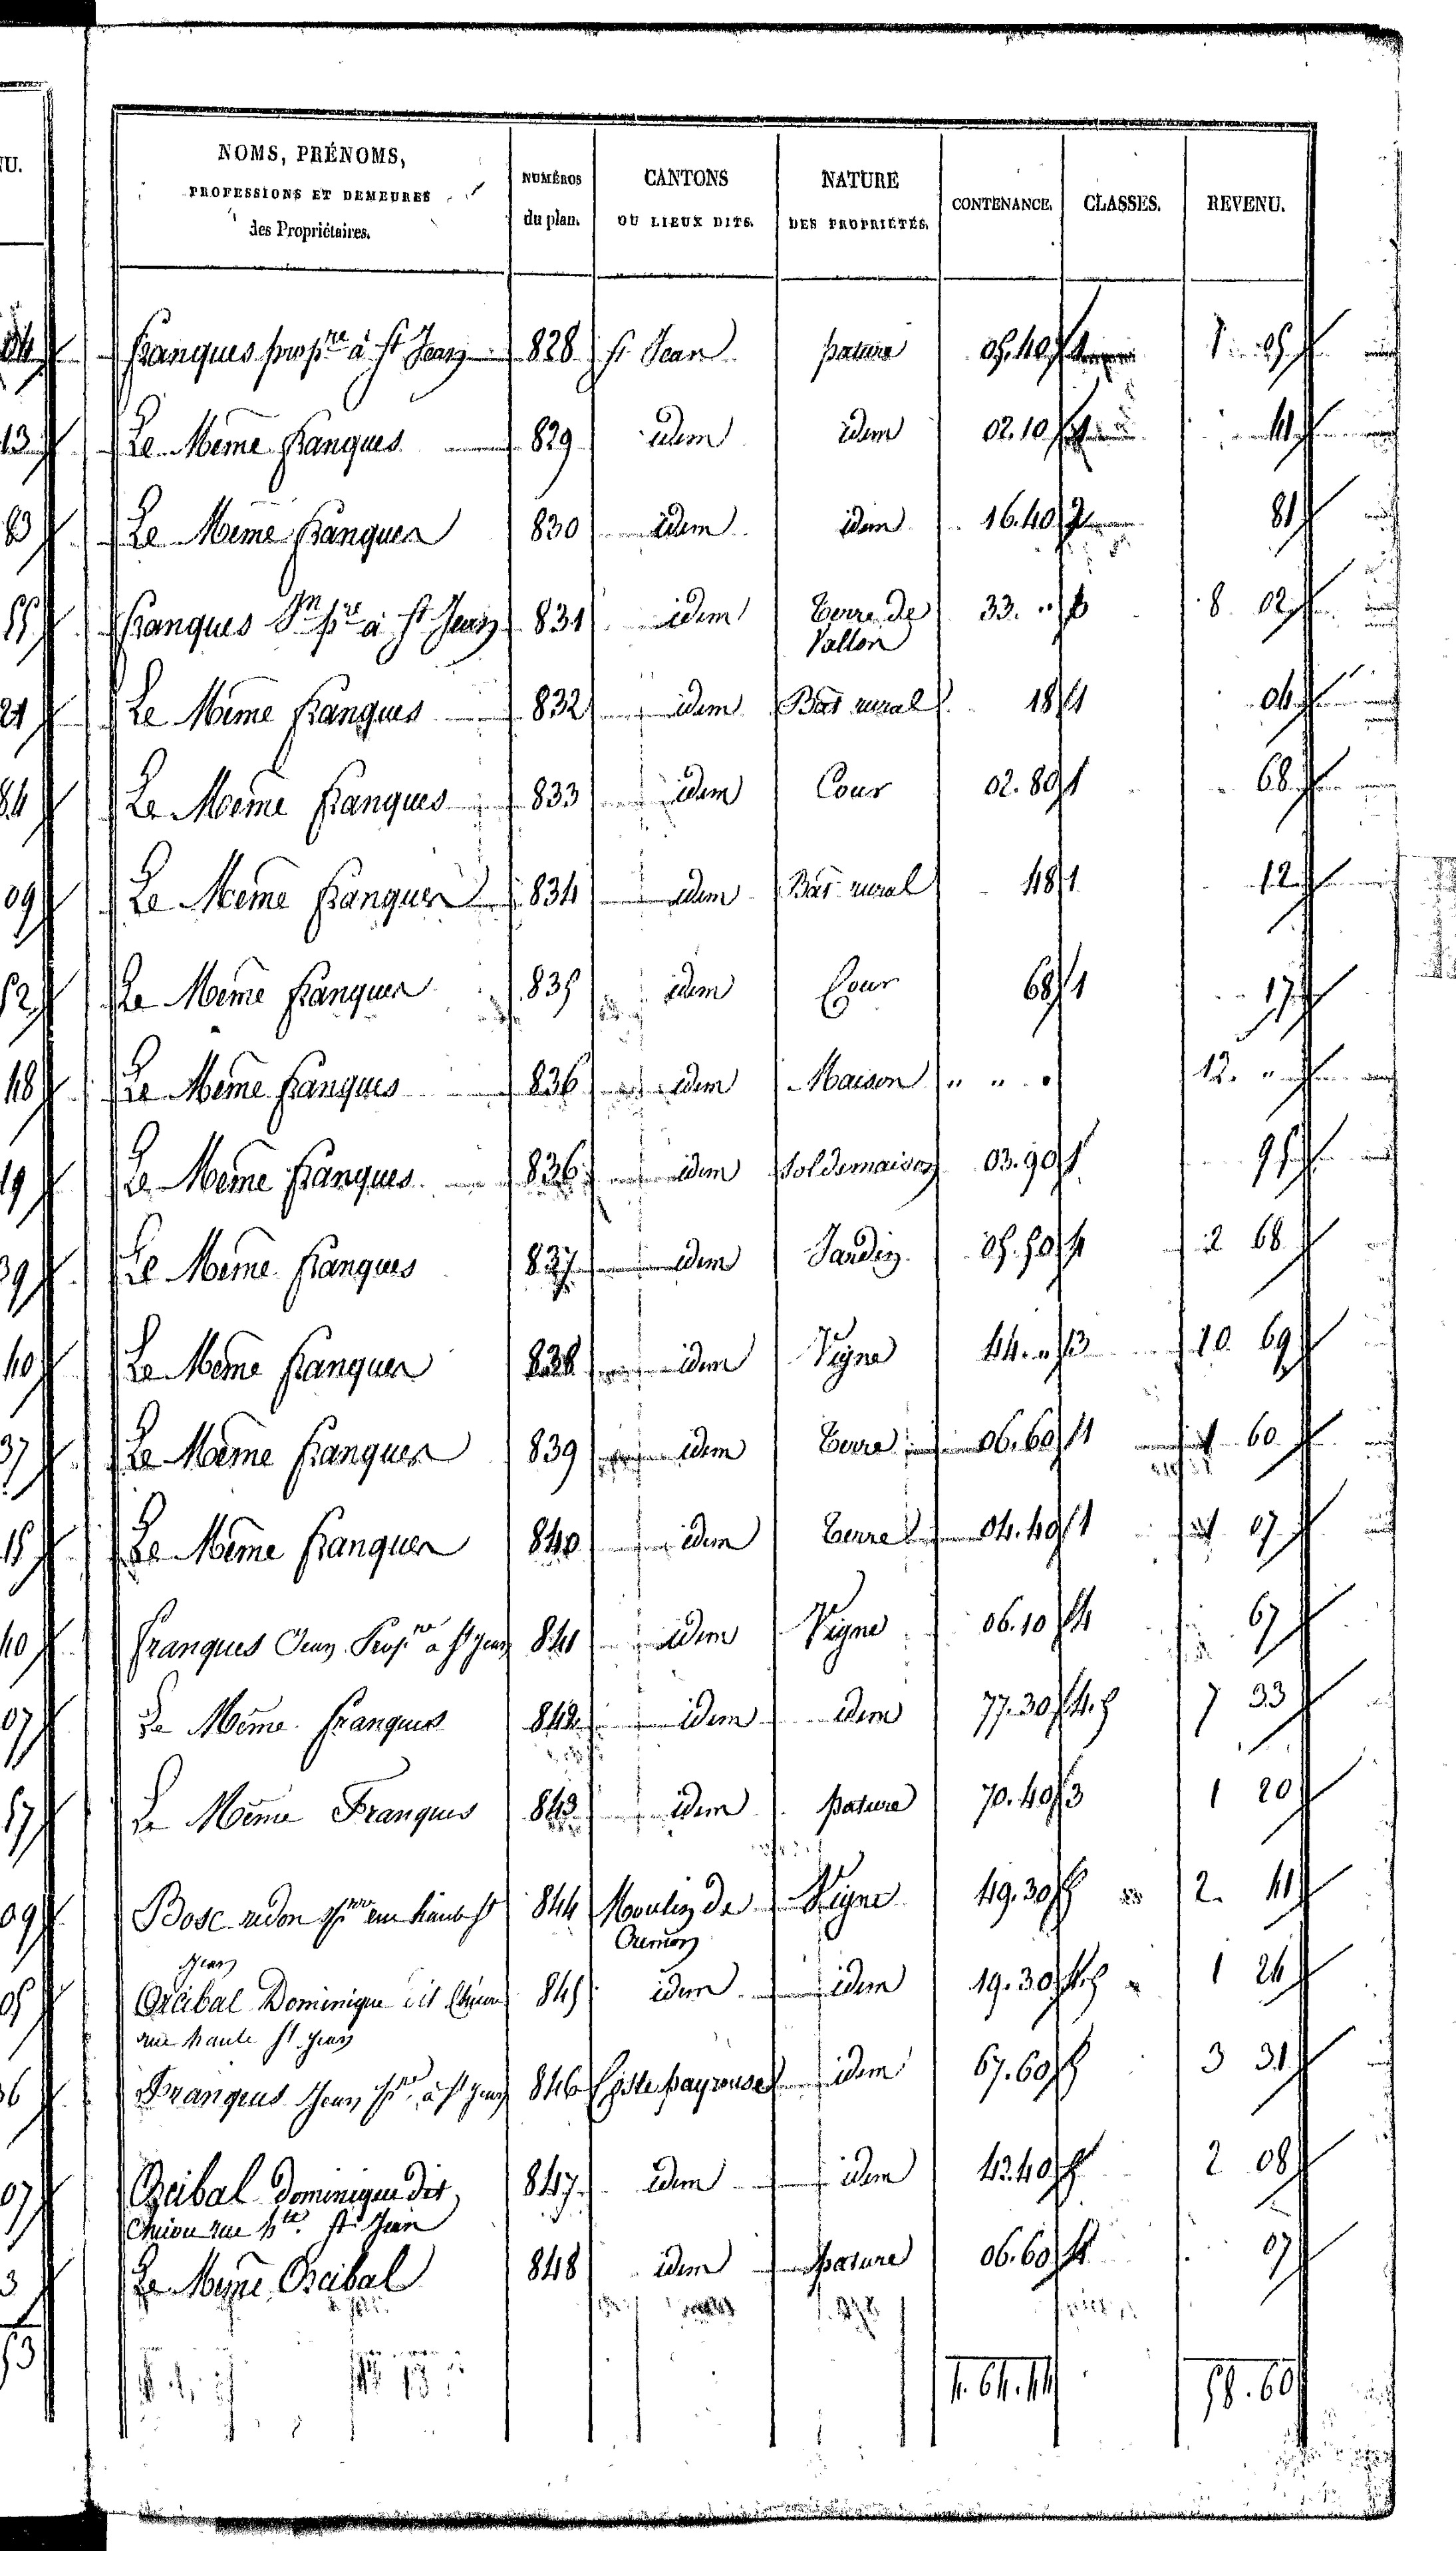 NOMS, PRÉNOMS, PROFESSIONS ET DEMEURES des Propriétaires. NUMÉROS du plan. CANTONS OU LIEUX DITS. NATURE DES PROPRIÉTÉS. CONTENANCE. CLASSES. REVENU.
franques prop.re à St Jean 828 St Jean pature 05.40 1 05
Le Même franques 829 idem idem 02.10 41
Le Même franques 830 idem idem 16.40 2 81
franques à St Jean 831 idem Terre de 33. " 8 02
Vallon
Le Même franques 832 idem Bât rural 18 1 04
Le Même franques 833 idem Cour 02.80 1 68
Le Même franques 834 idem Bât rural 48 1 12
Le Même franques 835 idem Cour 68 1 17
Le Même franques 836 idem Maison " " " 12. "
Le Même franques 836 idem Sol de maison 03.90 1 95
Le Même franques 837 idem Jardin 05.50 2 68
Le Même franques 838 idem Vigne 44. " 3 10 69
Le Même franques 839 idem Terre 06.60 1 1 60
Le Même franques 840 idem Terre 04.40 1 1 07
franques Jean Prop.re à St Jean 841 idem Vigne 06.10 4 67
Le Même franques 842 idem idem 77.30 4.5 7 33
Le Même Franques 843 idem pature 70.40 3 1 20
Bosc redon rue haute St 844 Moulin de Vigne 49.30 5 2. 41
Jean
Dominique dit 845 idem idem 19.30 4.5 1 24
rue haute St Jean
Franques Jean à St Jean 846 idem 67.60 5 3 31
dominique dit 847 idem idem 42.40 5 2 08
rue h.te St Jean
Le Même 848 idem pature 06.60 07
4.64.44 58.60